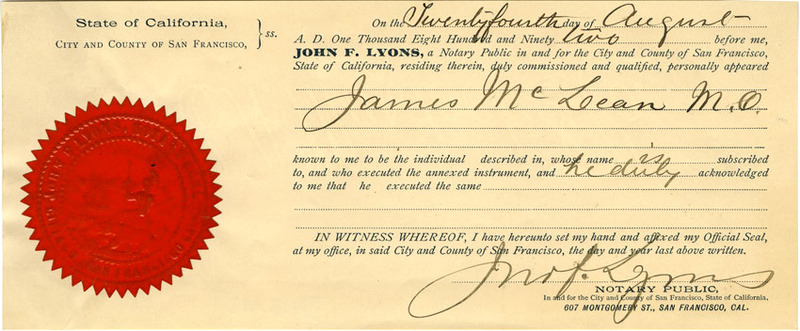 State of California,
CITY AND COUNTY OF SAN FRANCISCO,
ss.
On the Twentyfourth day of August
A. D. One Thousand Eight Hundred and Ninety two before me,
JOHN F. LYONS, a Notary Public in and for the City and County of San Francisco,
State of California, residing therein, duly commissioned and qualified, personally appeared
James McLean M.D.
known to me to be the individual described in, whose name is subscribed
to, and who executed the annexed instrument, and he duly acknowledged
to me that he executed the same
IN WITNESS WHEREOF, I have hereunto set my hand and affixed my Official Seal,
at my office, in said City and County of San Francisco, the day and year last above written.
Jno. F. Lyons
NOTARY PUBLIC,
In and for the City and County of San Francisco, State of California,
607 MONTGOMERY ST., SAN FRANCISCO, CAL.